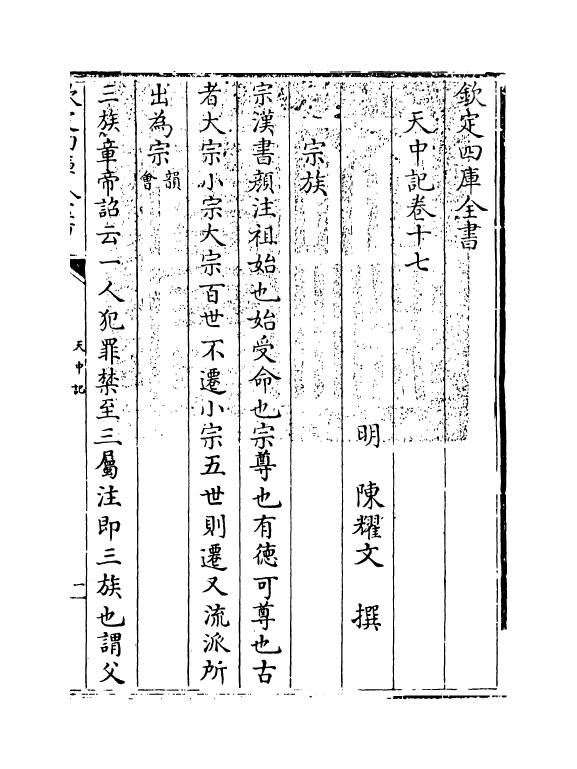 欽定四庫全書
天中記卷十七
明 陳耀文 撰
宗族
宗漢書顔注祖始也始受命也宗尊也有德可尊也古
者大宗小宗大宗百世不遷小宗五世則遷又流派所
出為宗韻會
三族章帝詔云一人犯罪禁至三屬注即三族也謂父
天中記